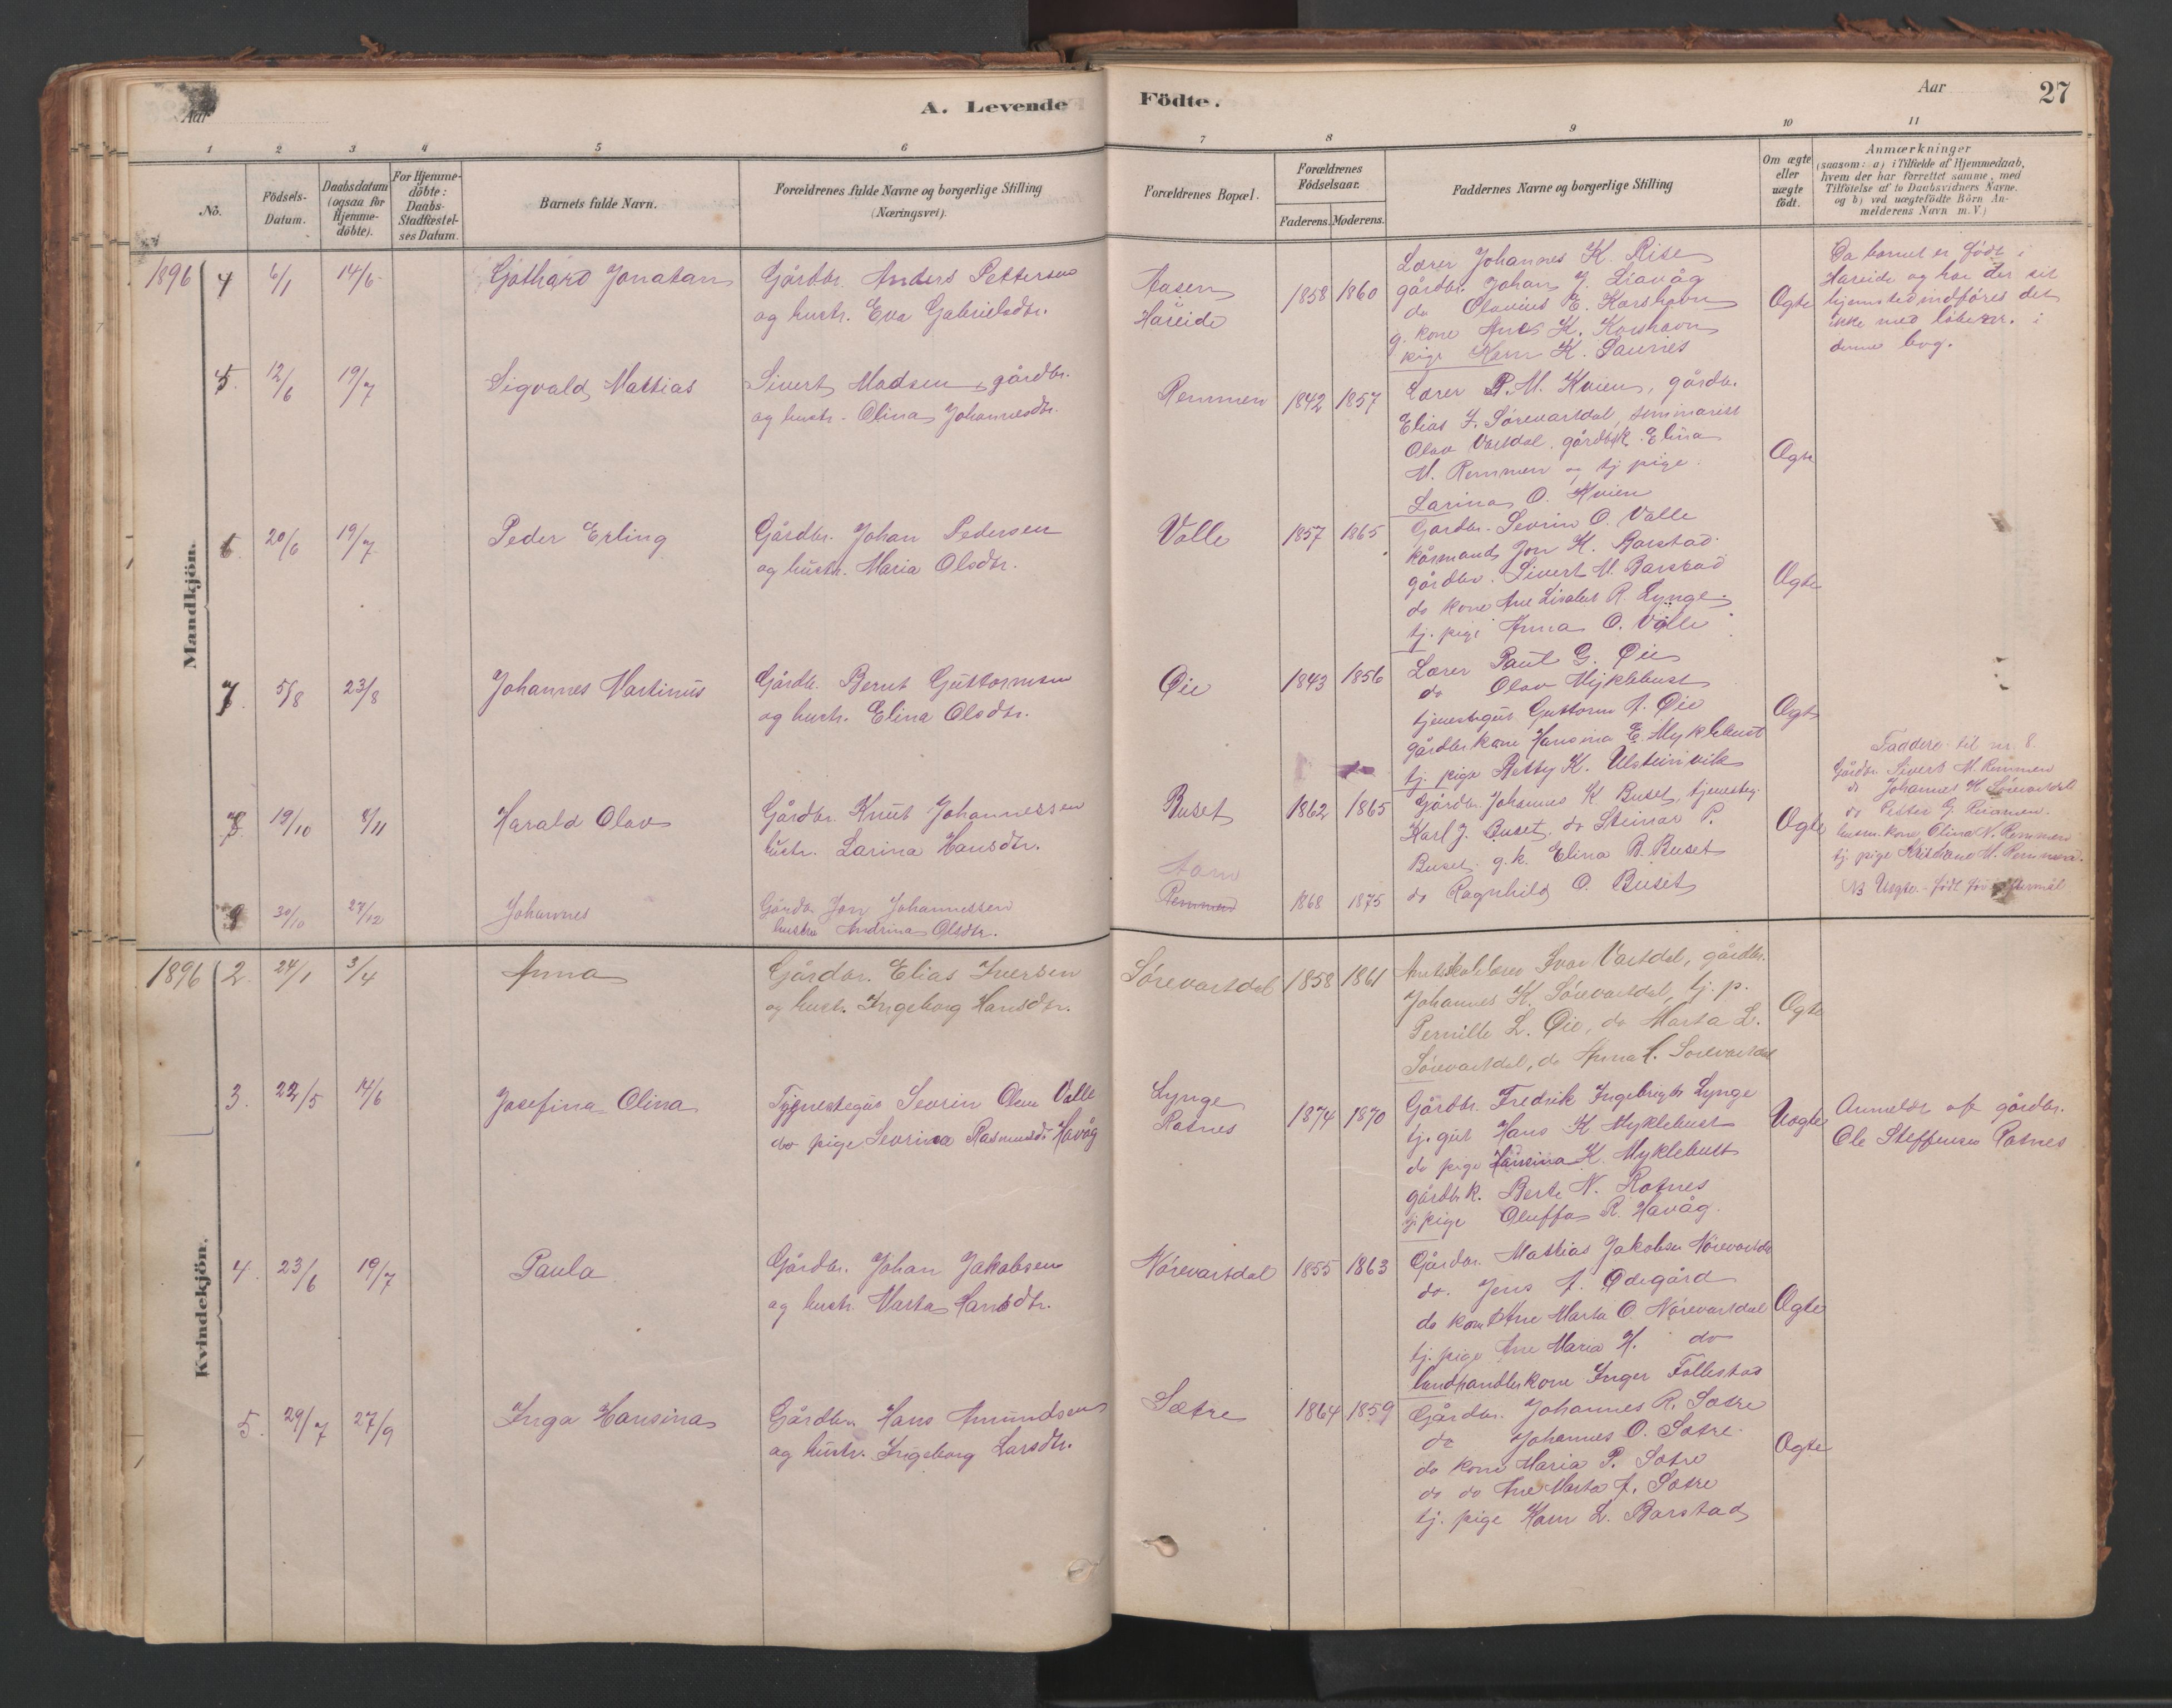 Aar
A. Levende
Födte.
Aar
27
1
2
3
4
5
6
7
8
9
10
11
No.
Födsels-
Datum.
Daabsdatum
(ogsaa for
Hjemme-
döbte).
For Hjemme-
döbte:
Daabs-
Stadfæstel-
ses Datum.
Barnets fulde Navn.
Forældrenes fulde Navne og borgerlige Stilling
(Næringsvei).
Forældrenes Bopæl.
Forældrenes
Födselsaar.
Faderens.
Moderens.
Faddernes Navne og borgerlige Stilling
Om ægte
eller
uægte
födt.
Anmærkninger
(saasom: a) i Tilfælde af Hjemmedaab,
hvem der har forrettet samme, med
Tilföielse af to Daabsvidners Navne.
og b) ved uægtefödte Börn An-
melderens Navn m.V.)
Mandkjön.
1896
4
6/1
14/6
Gothard Jonatan
Gårdbr. Anders Pettersen
og hustr. Eva Gabrielsdtr.
Aasen
Hareide
1858
1860
Lærer Johannes K. Rise
gårdbr. Johan J. Liavåg
do Olavius E. Korshavn
g. kone Ane K. Korshavn
pige Karn K.
Ægte
Da barnet er født i
Hareide og har der sit
hjemsted indføres det
ikke med løbenr. i
denne bog.
5.
12/6
19/7
Sigvald Mattias
Sivert Madsen, gårdbr.
og hustr. Olina Johannesdtr.
Remmen
1842
1857
Lærer P. M. Kvien, gårdbr.
Elias I. Sørevartdal, seminarist
Olav Vartdal, gårdbk. Elina
M. Remmen og tj. pige
Larina O. Kvien
Ægte
6.
20/6
19/7
Peder Erling
Gårdbr. Johan Pedersen
og hustr. Maria Olsdtr.
Valle
1857
1865
Gardbr. Sevrin O. Valle
kårmand Jon K. Barstad
gårdbr. Sivert M. Barstad
do kone Ane Lisabet R. Lynge
tj. pige Anna O. Valle
Ægte
7.
5/8
23/8
Johannes Martinus
Gårdb. Bernt Guttormsen
og hustr. Elina Olsdtr.
Øie
1843
1856
Lærer Paul G. Øie
do Olav Myklebust
tjenestegut Guttorm A. Øie
gårdbr kone Hansina E. Myklebust
tj. pige Betty K. Ulsteinvik
Ægte
8.
19/10
8/11
Harald Olav
Gårdbr. Knut Johannessen
hustr. Larina Hansdtr.
Buset
1862
1865
Gårdbr. Johannes K. Buset, tjenesteg.
Karl J. Buset, do Steinar P.
Buset, g.k. Elina B. Buset
do Ragnhild O. Buset
Ægte
Faddere til nr. 8.
Gårdbr. Sivert M. Remmen
do Johannes H Sørevartdal
do Petter G. Remmen
husm. kone Olina N. Remmen
tj. pige Kristiane M. Remmen.
9
30/10
27/12
Johannes
Gårdbr. Jon Johannessen
hustru Andrina Olsdtr.
Remmen
1868
1875
Kvindekjön.
1896
2.
24/1
3/4
Anna
Gårdbr. Elias Iversen
og hustr. Ingeborg Hansdtr.
Sørevartdal
1858
1861
Amtskolelærer Ivar Vartdal, gårdbr.
Johannes K. Sørevartdal, tj. p.
Pernille L. Øie, do Marta L.
Sørevartdal, do Anna A. Sørevartdal
Ægte
3.
22/5
14/6
Josefina Olina
Tjenestegut Sevrin Olsen Valle
do pige Sevrina Rasmusdt. Havåg
Lynge
Ratnes
1874
1870
Gårdbr. Fredrik Ingebrigts Lynge
tj. gut Hans K Myklebust
do pige Hansina K. Myklebust
gårdbr k. Berte N. Ratnes
tj. pige Oluffa R. Havåg.
Uægte
Anmeldt af gårdbr.
Ole Steffensen Ratnes
4.
23/6
19/7
Paula
Gårdbr. Johan Jakobsen
og hustr. Marta Hansdtr.
Nørevartdal
1855
1863
Gårdbr. Mattias Jakobsen Nørevartdal
do. Jens A. Ødegård
do kone Ane Marta O. Nørevartdal
tj. pige Ane Maria H. do
landhandler kone Inger Follestad
Ægte
5.
29/7
27/9
Inga Hansina
Gårdbr. Hans Amundsen
og hustr. Ingeborg Larsdtr.
Sætre
1864
1859
Gårdbr. Johannes R. Sætre
do Johannes O. Sætre
do kone Maria P. Sætre
do do Ane Marta J. Sætre
tj. pige Karn L. Barstad
Ægte